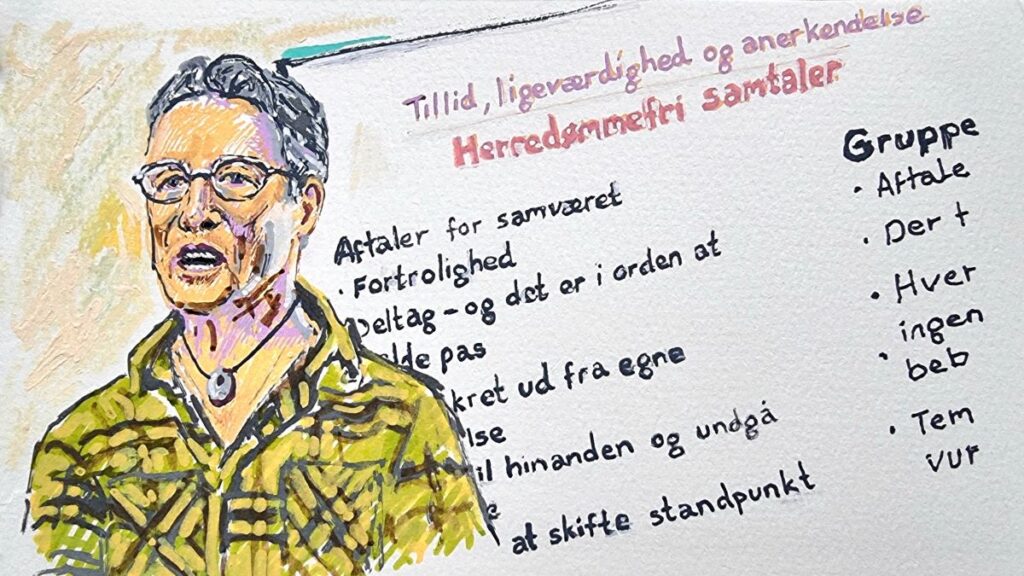 Tillid, ligeværdighed og anerkendelse
Herredømmefri samtaler
Aftaler for samværet
· Fortrolighed
Deltag - og det er i orden at
lde pas
kret ud fra egne
lse
il hinanden og undgå
e
at skifte standpunkt
Gruppe
· Aftale
· Der t
· Hver
ingen
· beb
· Tem
vur